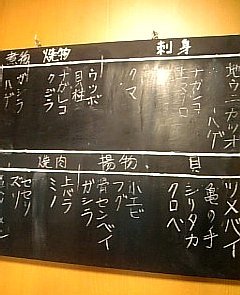 刺身
地ウニカツオ
ハゲ
ナガレコ
生マグロ
クマ
焼物
ウツボ
貝柱
ナガレコ
クジラ
煮物
ガシラ
ハゲ
貝
ツメバイ
亀の手
シリタカ
クロベ
揚物
小エビ
フグ
骨センベイ
ガシラ
焼肉
上バラ
ミノ
セセリ
ズリ